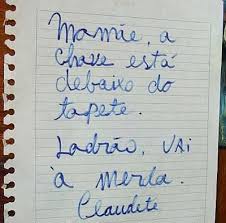 Mamãe, a
chave está
debaixo do
tapete.
Ladrão, vai
à merda.
Claudete